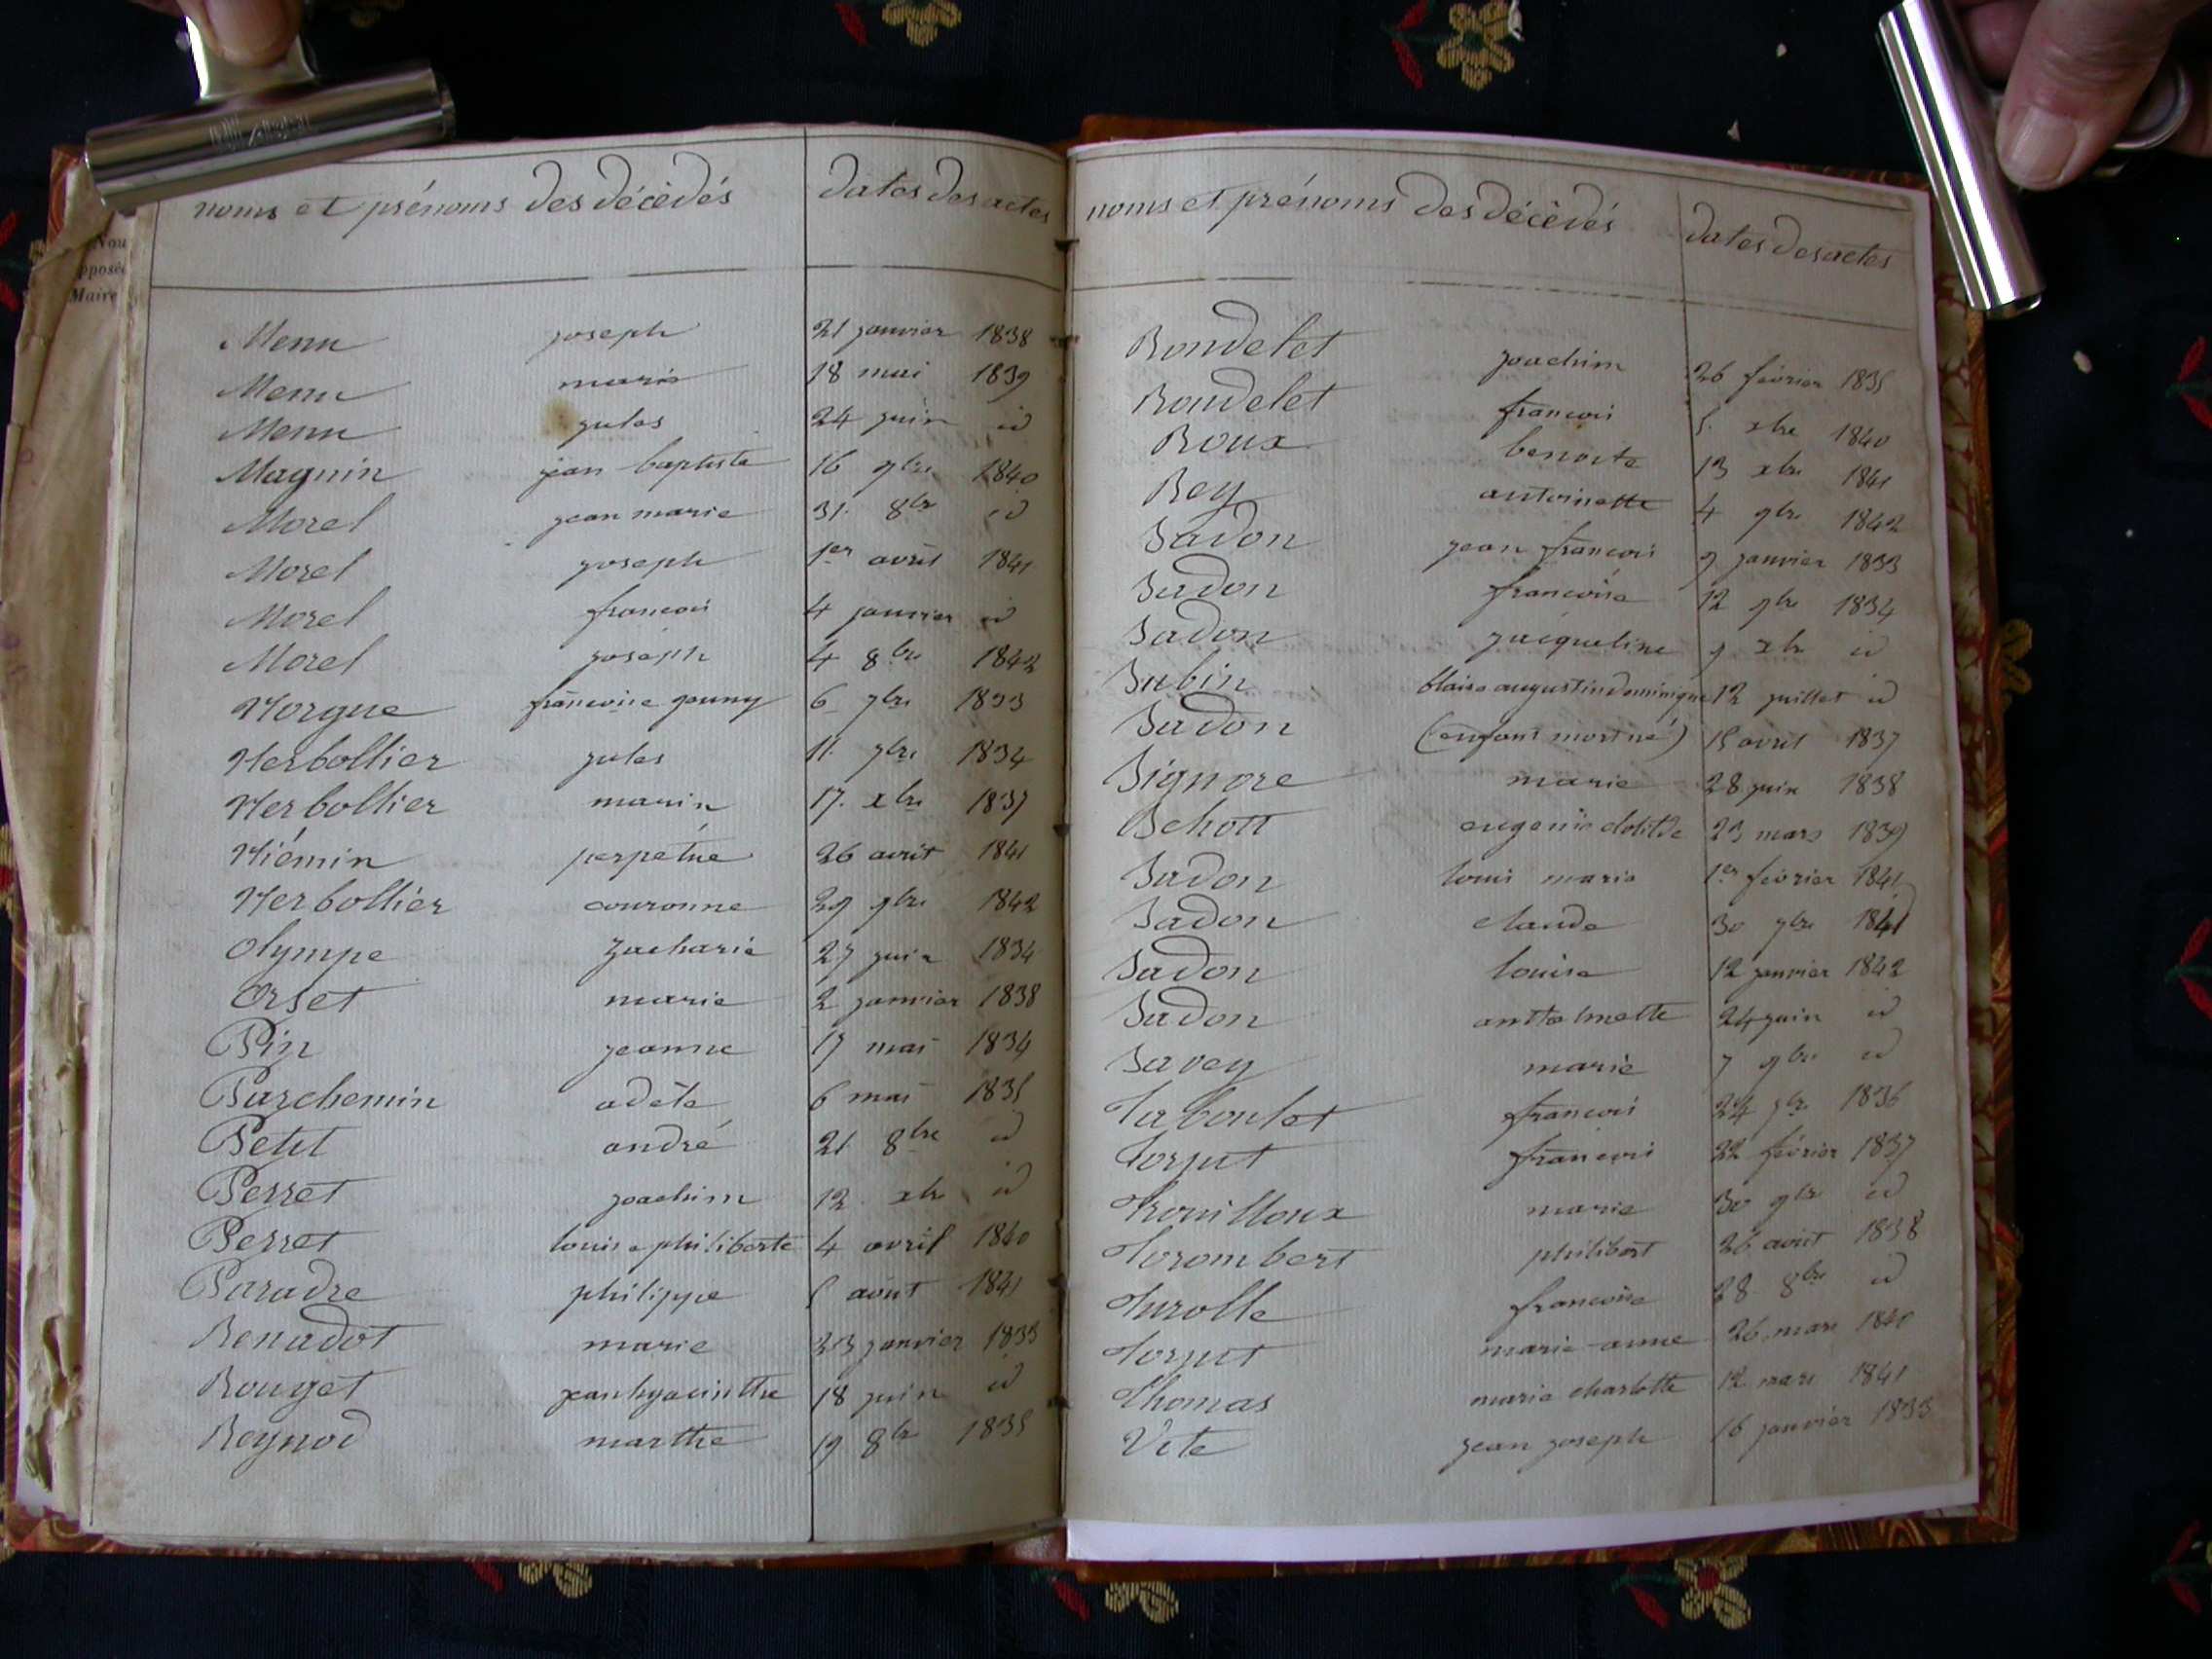 Nou
pposée
Maire
noms et prénoms des décédés dates des actes
Menu joseph 21 janvier 1838
Menu marie 18 mai 1839
Menu jules 24 juin id
Magnin jean baptiste 16 9bre 1840
Morel jean marie 31. 8bre id
Morel joseph 1er avril 1841
Morel francois 4 janvier id
Morel joseph 4 8bre 1842
Norgue francoise jenny 6 1833
Herbollier jules 11. 1834
Herbollier marin 17. xbre 1837
Niémin perpetue 26 avril 1841
Herbollier couronne 29 9bre 1842
Olympe zacharie 27 juin 1834
Orset marie 2 janvier 1838
Pin jeanne 17 mai 1834
Parchemin adèle 6 mai 1835
Petit andré 21 8bre id
Perret joachim 12 xbre id
Perret louise philiberte 4 avril 1840
Paradze philippe 5 aout 1841
Renadot marie 23 janvier 1833
Rouget jean hyacinthe 18 juin id
Reynod marthe 19 8bre 1835
noms et prénoms des décédés dates des actes
Rondelet joachim 26 février 1835
Rondelet francois 5. xbre 1840
Roux benoite 13 xbre 1841
Rey antoinette 4 9bre 1842
Sadon jean francois 9 janvier 1833
Sadon francoise 12 9bre 1834
Sadon jacqueline 9 xbre id
Subin blaise augustin dominique 12 juillet id
Sadon (enfant mort né) 15 avril 1837
Signore marie 28 juin 1838
Schott eugenie clotilde 23 mars 1839
Sadon louis marie 1er février 1841
Sadon claude 30 1841
Sadon louise 12 janvier 1842
Sadon anthelmette 24 juin id
Savey marie 7 9bre id
Taboulet francois 24 1836
Torput francois 22 février 1837
Trouilloux marie 30 9bre id
Torombert philibert 26 aout 1838
Turolle francoise 28 8bre id
Torput marie anne 26 mars 1840
Thomas marie charlotte 12 mars 1841
Vite jean joseph 16 janvier 1833